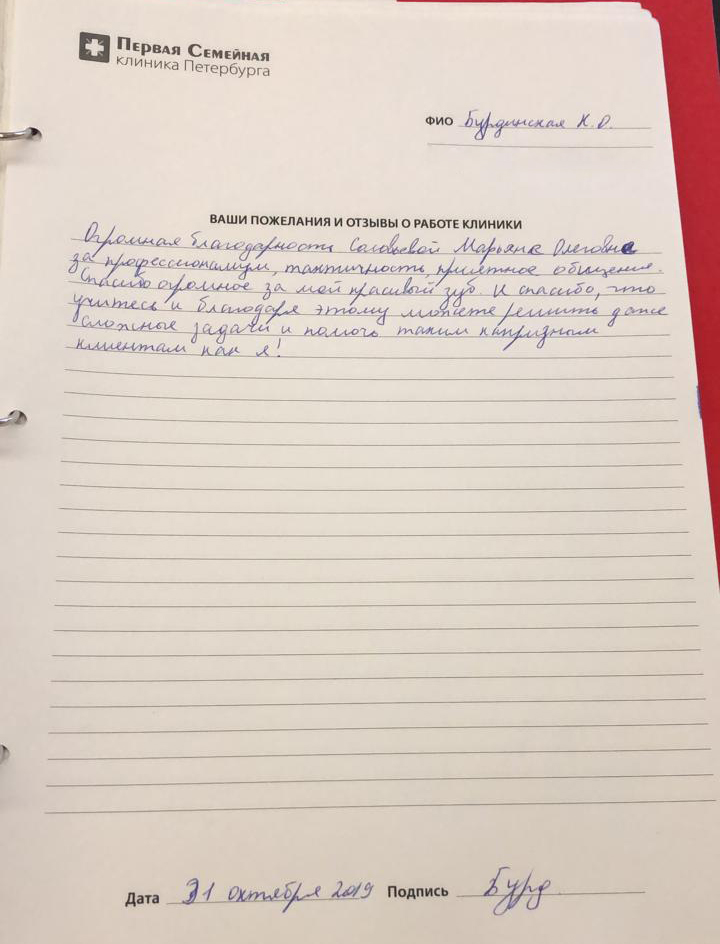 Первая Семейная
клиника Петербурга
ФИО Бурдинская К. О.
ВАШИ ПОЖЕЛАНИЯ И ОТЗЫВЫ О РАБОТЕ КЛИНИКИ
Огромная благодарность Соловьевой Марьяне Олеговне
за профессионализм, тактичность, приятное общение.
Спасибо огромное за мой красивый зуб. И спасибо, что
учитесь и благодаря этому можете решить даже
сложные задачи и помочь таким капризным
клиентам как я!
Дата 31 октября 2019 Подпись Бурд